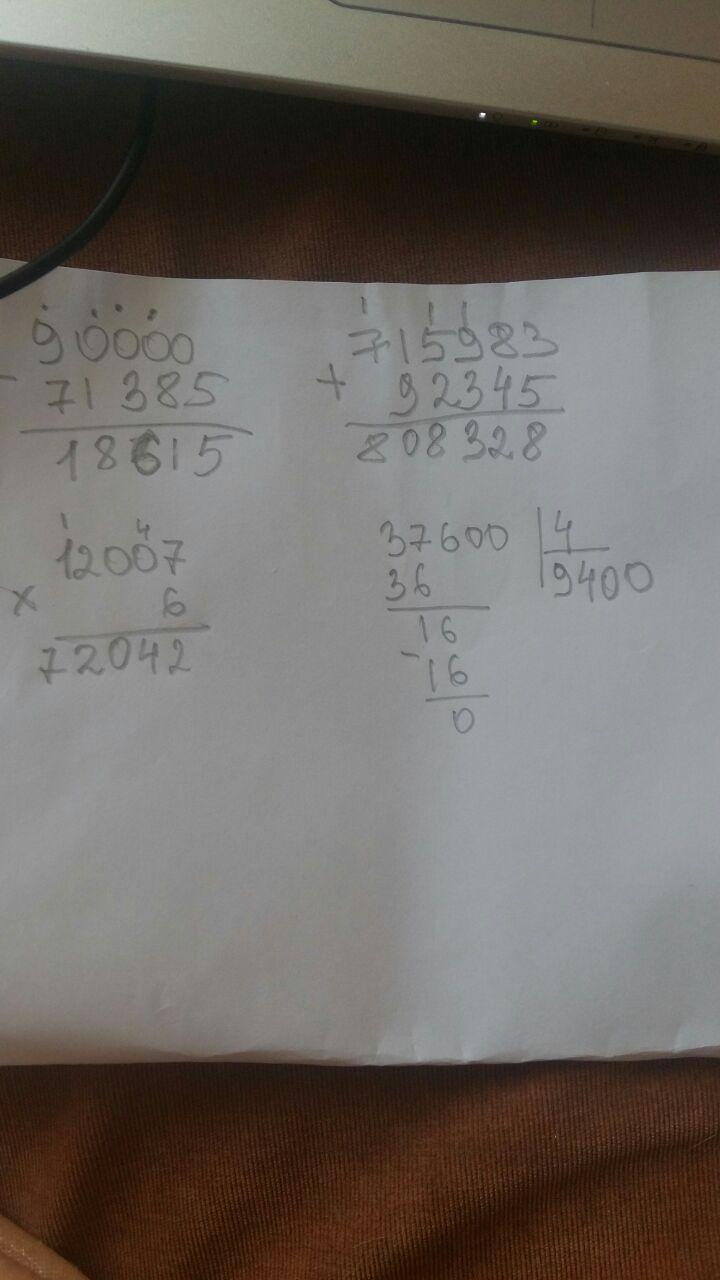 90000
- 71385
18615
1 1 1
715983
+ 92345
808328
1 4
12007
x 6
72042
37600 | 4
36 9400
16
- 16
0